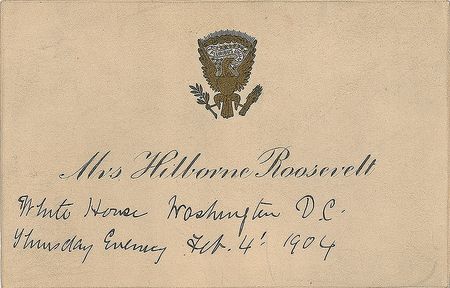 Mrs Hilborne Roosevelt
White House Washington D.C.
Thursday Evening Feb. 4' 1904